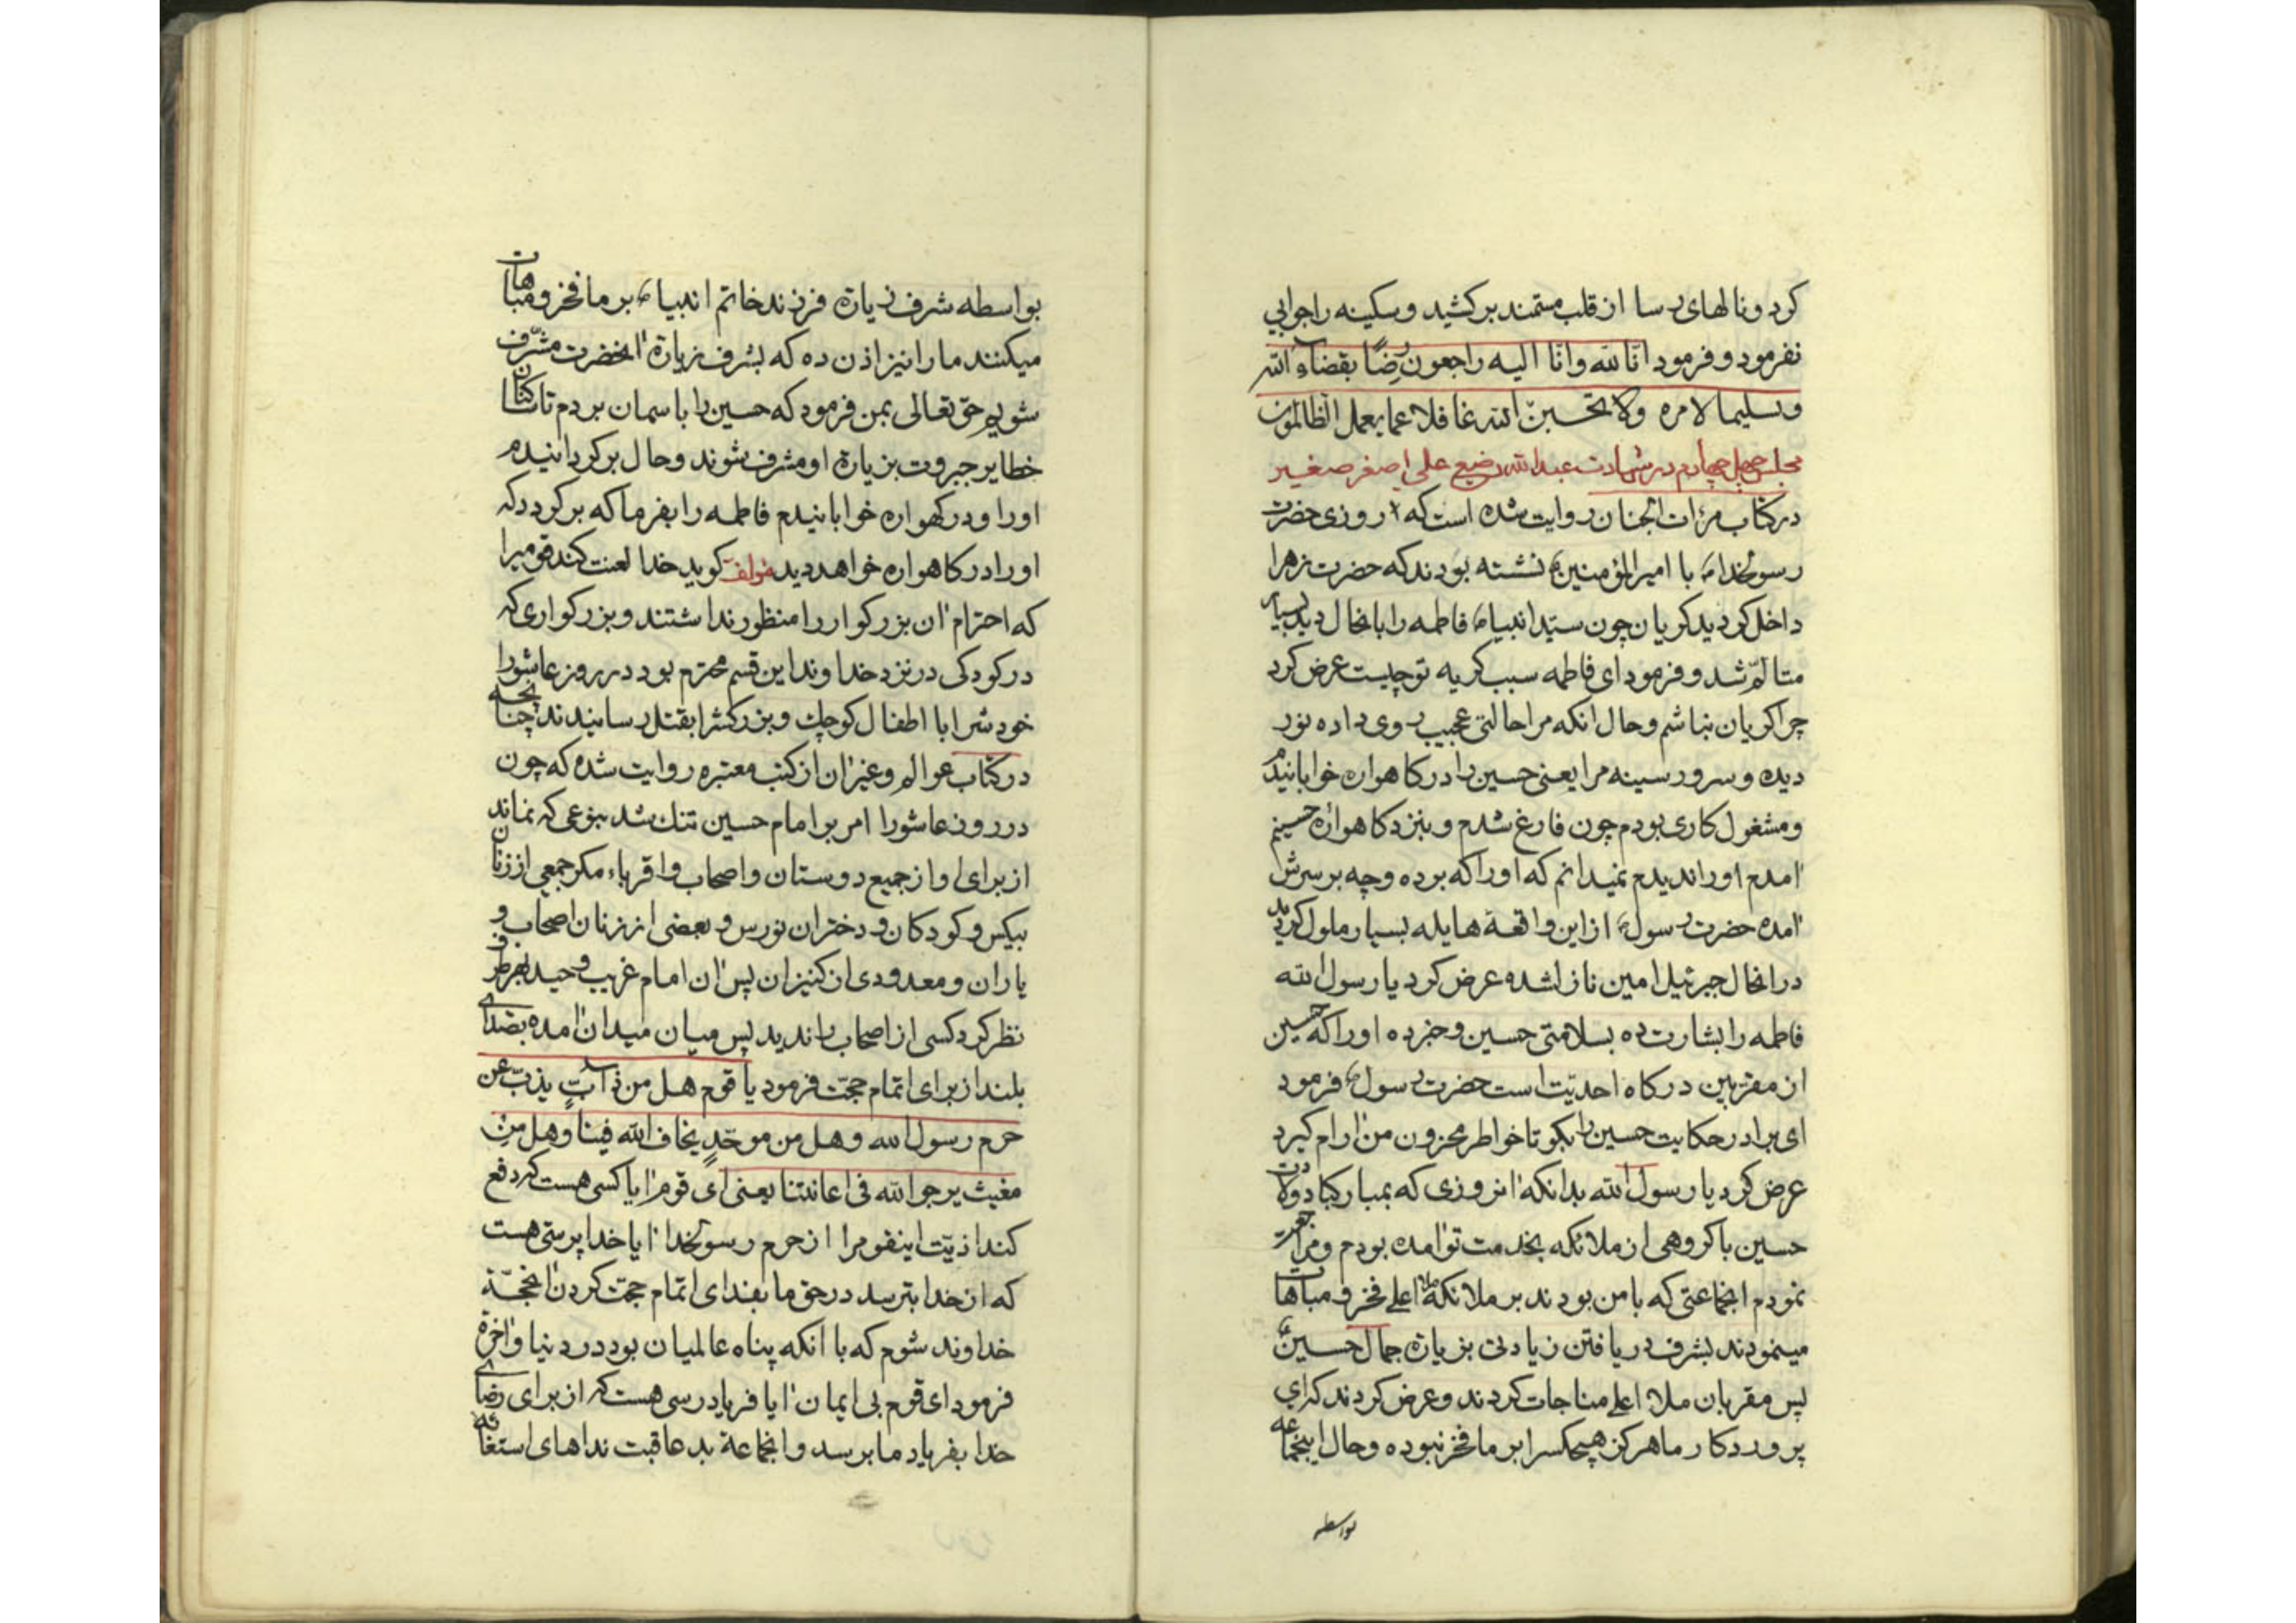 کرد و نالهای رسا از قلب مستمند برکشید و سکینه را جوابی
نفرمود و فرمود انّا لله وانّا الیه راجعون رضًا بقضاء الله
وتسلیما لامره ولا تحسبنّ الله غافلا عما یعمل الظالمون
مجلس چهل چهارم در شهادت عبدالله رضیع علی اصغر صغیر
در کتاب مرٔات الجنان روایت شده است که روزی حضرت
رسولخدا ص با امیرالمؤمنین ع نشسته بودند که حضرت زهرا
داخل کردید کریان چون سیّد انبیا ص فاطمه را باینحال دید بسیار
متألّم شد و فرمود ای فاطمه سبب کریه تو چیست عرض کرد
چرا کریان نباشم و حال انکه مرا حالتی عجیب روی داده نور
دیده و سرور سینه مرا یعنی حسین را در کاهواره خوابانیدم
و مشغول کاری بودم چون فارغ شدم و بنزد کاهواره حسینم
امدم او را ندیدم نمیدانم که او را که برده و چه بر سرش
امده حضرت رسول ص از این واقعهٔ هایله بسیار ملول کردید
در انحال جبرئیل امین نازل شده عرض کرد یا رسول الله
فاطمه را بشارت ده بسلامتی حسین و خبر ده او را که حسین
از مقربین درکاه احدیّت است حضرت رسول ص فرمود
ای برادر حکایت حسین را بکو تا خواطر محزون من آرام کیرد
عرض کرد یا رسول الله بدانکه انروزی که بمبارکباد ولادت
حسین با کروهی از ملائکه بخدمت تو امده بودم و مراجعت
نمودم انجماعتی که با من بودند بر ملائکه ملا اعلی فخر و مباهات
مینمودند بشرف دریافتن زیادتی بزیارة جمال حسین ع
پس مقربان ملا اعلی مناجات کردند و عرض کردند که ای
پروردکار ما هرکز هیچکس را بر ما فخر نبوده و حال اینجماعه
بواسطه
بواسطه شرف زیارة فرزند خاتم انبیا ص بر ما فخر و مباهات
میکنند ما را نیز اذن ده که بشرف زیارة انحضرت مشرّف
شویم حق تعالی بمن فرمود که حسین را باسمان بردم تا ساکنان
خطایر جبروت بزیارة او مشرف شوند و حال برکردانیدم
او را و در کهواره خوابانیدم فاطمه را بفرما که برکردد که
او را در کاهواره خواهد دید مؤلف کوید خدا لعنت کند قومیرا
که احترام ان بزرکوار را منظور نداشتند و بزرکواری که
در کودکی در نزد خداوند این قسم محترم بود در روز عاشورا
خودش را با اطفال کوچک و بزرکش را بقتل رسانیدند چنانچه
در کتاب عوالم و غیر ان از کتب معتبره روایت شده که چون
در روز عاشورا امر بر امام حسین تنک شد بنوعی که نماند
از برای او از جمیع دوستان و اصحاب و اقرباء مکر جمعی از زنان
بیکس و کودکان و دختران نورس و بعضی از زنان اصحاب و
یاران و معدودی از کنیزان پس ان امام غریب وحید بهر طرف
نظر کرد کسی از اصحاب را ندید پس میان میدان امده بصدای
بلند از برای اتمام حجّت فرمود یا قوم هل من ذابٍ یذبّ عن
حرم رسول الله وهل من موحّدٍ یخاف الله فینا وهل من
مغیث یرجو الله فی اغاثتنا یعنی ای قوم ایا کسی هست که دفع
کند اذیّت اینقوم را از حرم رسولخدا ایا خدا پرستی هست
که از خدا بترسد در حق ما بفدای اتمام حجت کردن انحجّة
خداوند شوم که با آنکه پناه عالمیان بود در دنیا و اخرة
فرمود ای قوم بی ایمان ایا فریادرسی هست که از برای رضای
خدا بفریاد ما برسد و انجماعة بد عاقبت نداهای استغاثه